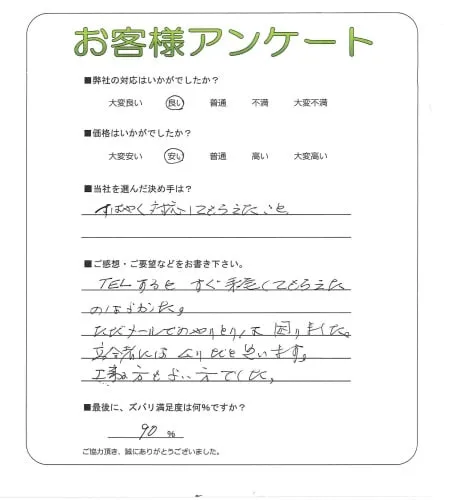 お客様アンケート
■弊社の対応はいかがでしたか？
大変良い 良い 普通 不満 大変不満
■価格はいかがでしたか？
大変安い 安い 普通 高い 大変高い
■当社を選んだ決め手は？
すばやく対応してもらえたこと
■ご感想・ご要望などをお書き下さい。
TELするとすぐ手配してもらえた
のはよかった。
ただメールでのやりとりは困りました。
立会者には と思います。
工事の方もよい方でした。
■最後に、ズバリ満足度は何%ですか？
90 %
ご協力頂き、誠にありがとうございました。